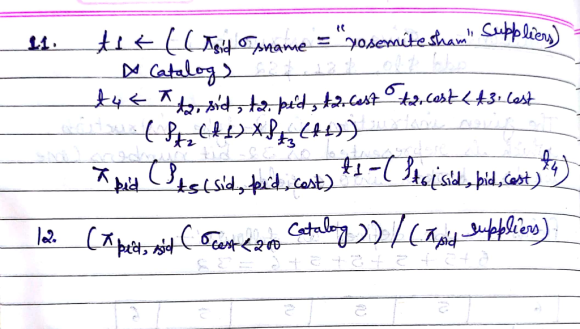 11. t1 ← ((π sid σ sname = "yosemite sham" Suppliers)
⋈ Catalog)
t4 ← π t2.sid, t2.pid, t2.cost σ t2.cost < t3.cost
(ρ t2 (t1) × ρ t3 (t1))
π pid (ρ t5 (sid, pid, cost) t1 - (ρ t6 (sid, pid, cost) t4)
12. (π pid, sid (σ cost < 200 Catalog)) / (π sid suppliers)